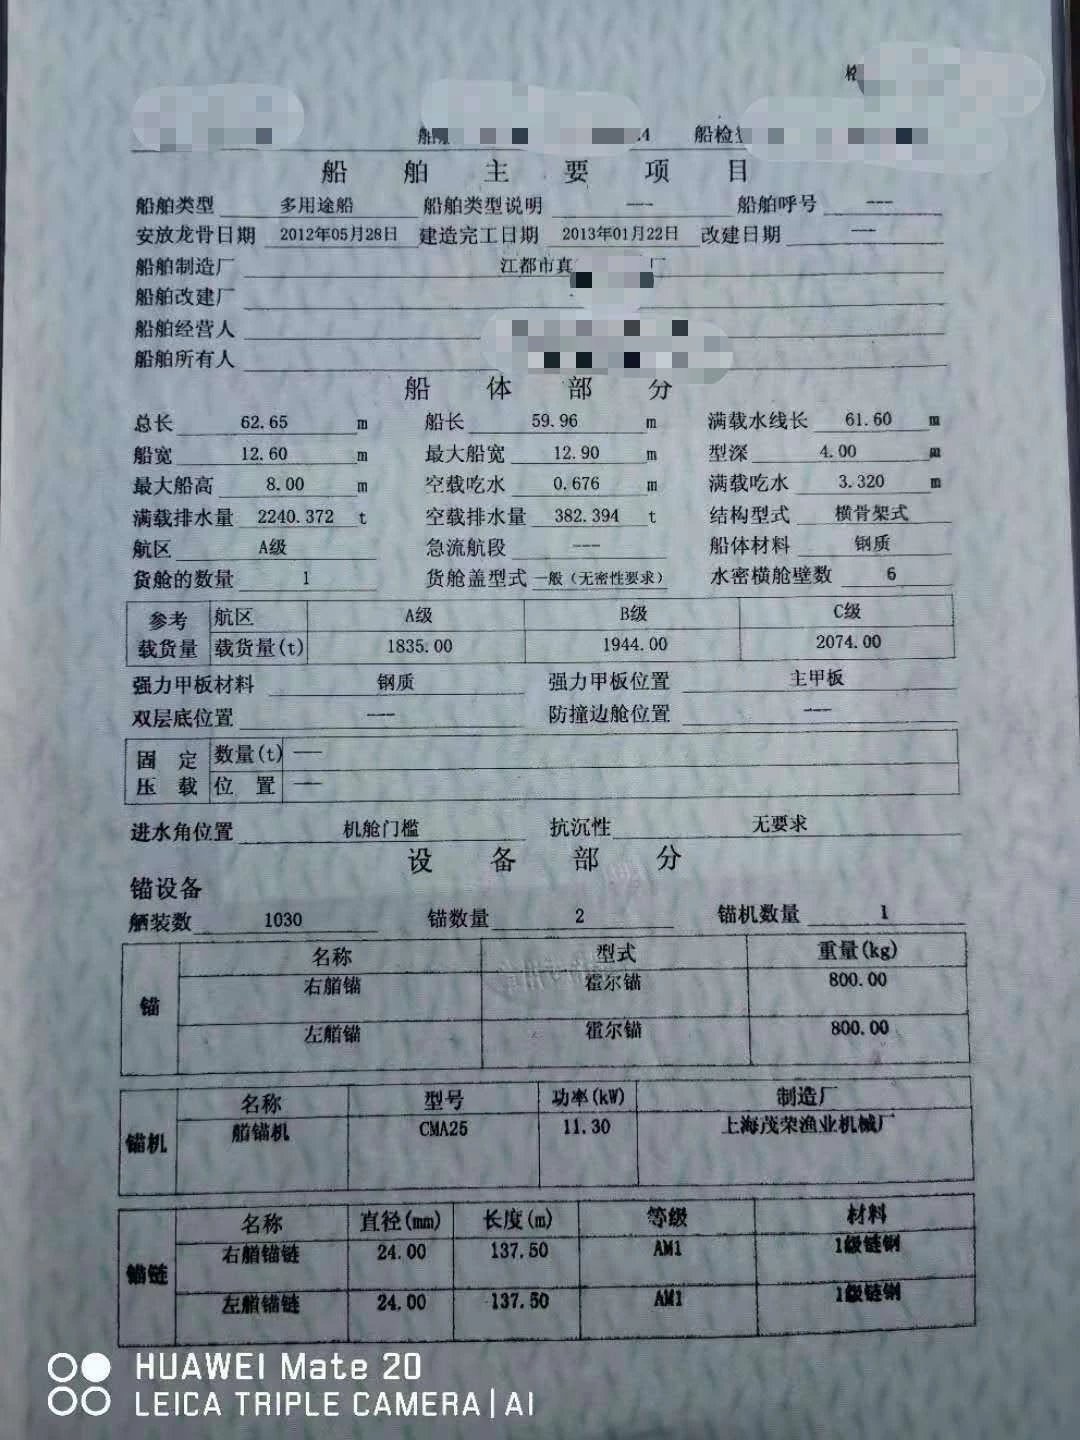 船检
船舶主要项目
船舶类型 多用途船 船舶类型说明 --- 船舶呼号 ---
安放龙骨日期 2012年05月28日 建造完工日期 2013年01月22日 改建日期 ---
船舶制造厂 江都市真 厂
船舶改建厂
船舶经营人
船舶所有人
船体部分
总长 62.65 m 船长 59.96 m 满载水线长 61.60 m
船宽 12.60 m 最大船宽 12.90 m 型深 4.00 m
最大船高 8.00 m 空载吃水 0.676 m 满载吃水 3.320 m
满载排水量 2240.372 t 空载排水量 382.394 t 结构型式 横骨架式
航区 A级 急流航段 --- 船体材料 钢质
货舱的数量 1 货舱盖型式 一般(无密性要求) 水密横舱壁数 6
参考 航区 A级 B级 C级
载货量 载货量(t) 1835.00 1944.00 2074.00
强力甲板材料 钢质 强力甲板位置 主甲板
双层底位置 --- 防撞边舱位置 ---
固定 数量(t) ---
压载 位置 ---
进水角位置 机舱门槛 抗沉性 无要求
设备部分
锚设备
舾装数 1030 锚数量 2 锚机数量 1
锚 名称 型式 重量(kg)
右艏锚 霍尔锚 800.00
左艏锚 霍尔锚 800.00
锚机 名称 型号 功率(kW) 制造厂
艏锚机 CMA25 11.30 上海茂荣渔业机械厂
锚链 名称 直径(mm) 长度(m) 等级 材料
右艏锚链 24.00 137.50 AM1 1级链钢
左艏锚链 24.00 137.50 AM1 1级链钢
HUAWEI Mate 20
LEICA TRIPLE CAMERA | AI